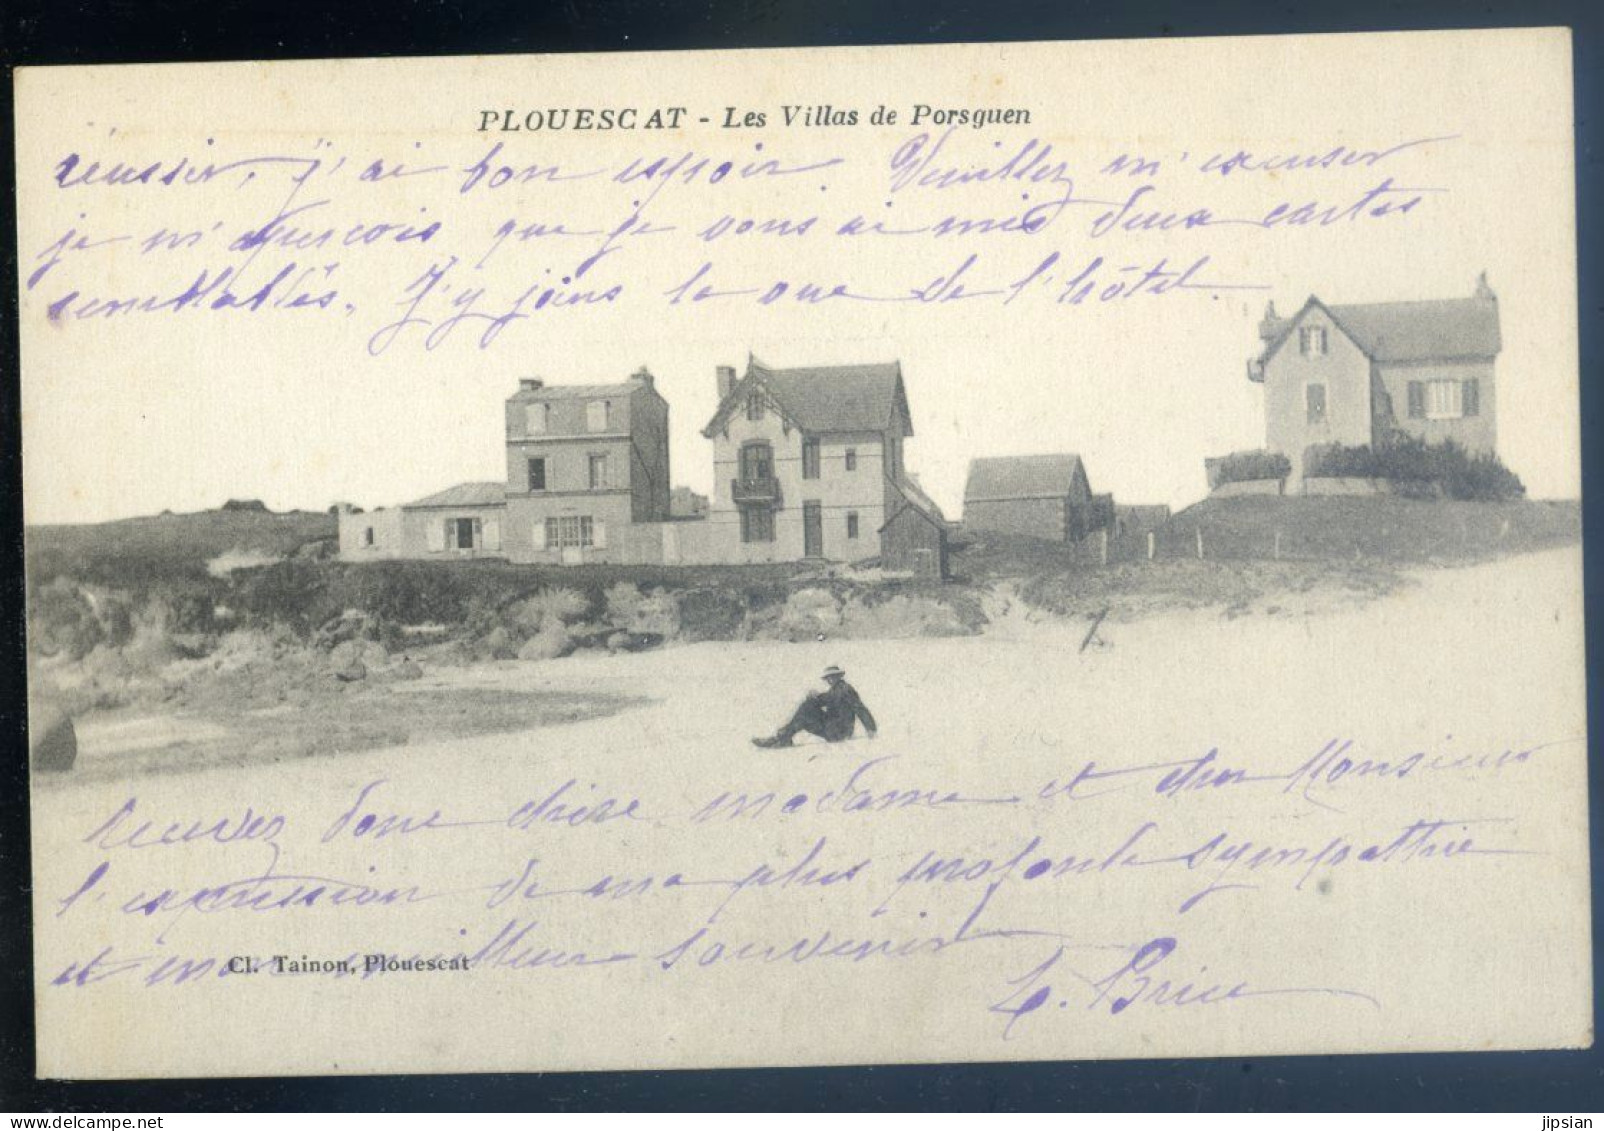 PLOUESCAT - Les Villas de Porsguen
réussir, j'ai bon espoir. Veuillez m'excuser
je m'aperçois que je vous ai mis deux cartes
semblables. J'y joins la vue de l'hôtel.
recevez donc chère madame et cher Monsieur
l'expression de ma plus profonde sympathie
et mon meilleur souvenir
Cl. Tainon, Plouescat
Brice
delcampe.net
jipsian